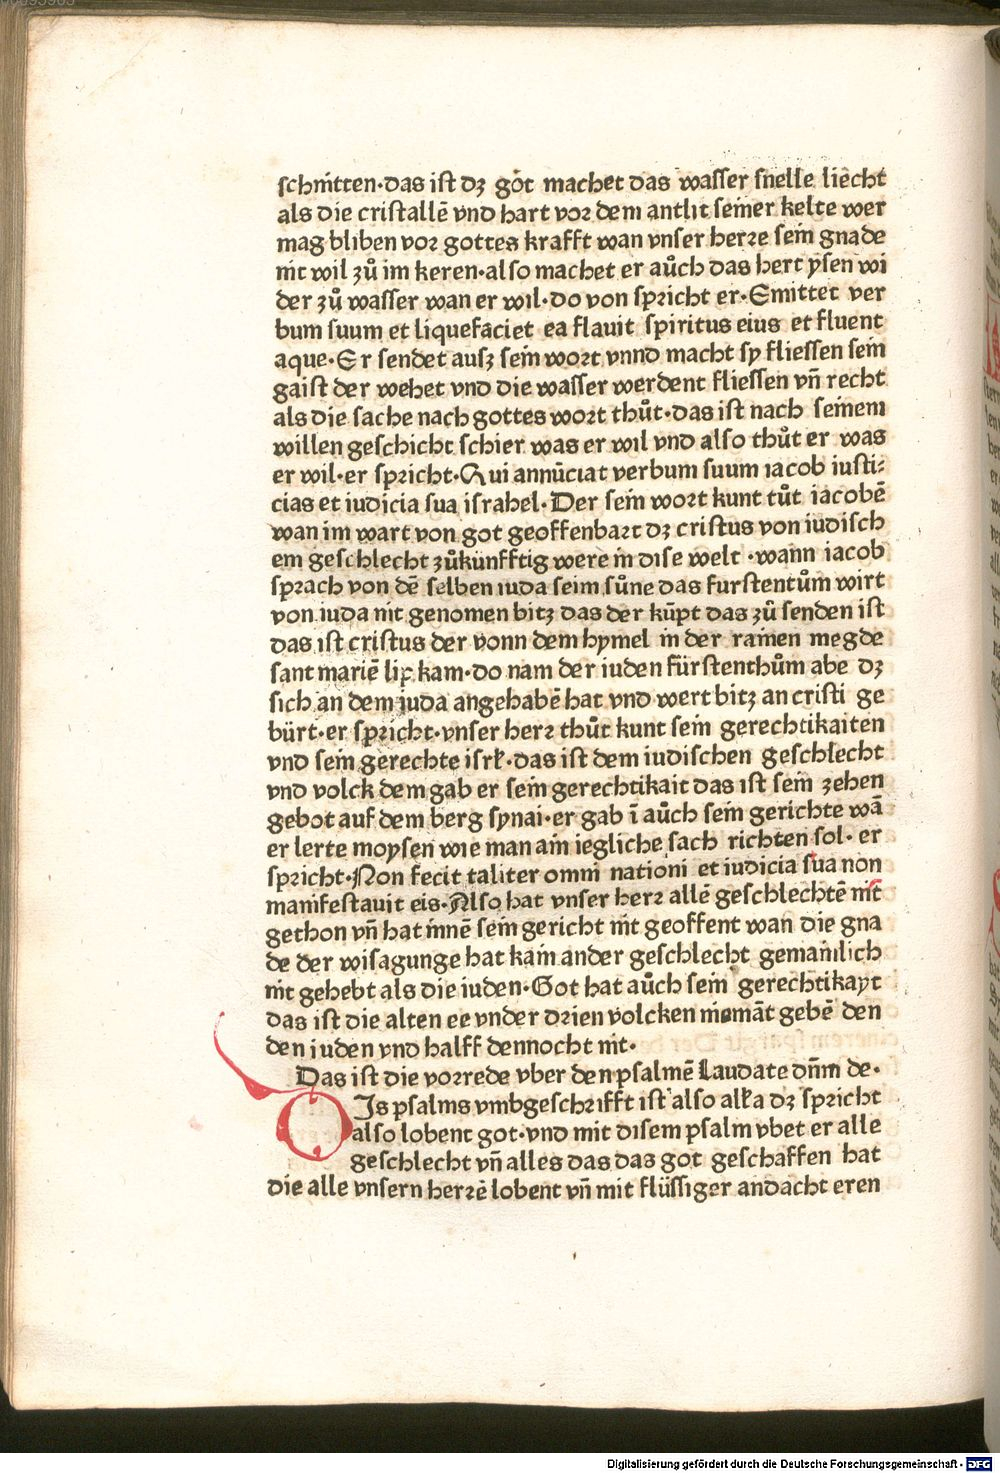 schnittten·das ist dʒ got machet das wasser snelle liecht
als die cristallē vnd hart vor dem antlit seiner kelte wer
mag bliben vor gottes krafft wan vnser herre sein gnade
nit wil zů im keren·also machet er aůch das hert ysen wi
der zů wasser wan er wil·do von spricht er·Emittet ver
bum suum et liquefaciet ea flauit spiritus eius et fluent
aque·Er sendet ausʒ sein wort vnnd macht sy fliessen sein
gaist der wehet vnd die wasser werdent fliessen vn̄ recht
als die sache nach gottes wort thůt·das ist nach seinem
willen geschicht schier was er wil vnd also thůt er was
er wil·er spricht·Qui annūciat verbum suum iacob iusti⸗
cias et iudicia sua israhel·Der sein wort kunt tůt iacobē
wan im wart von got geoffenbart dʒ cristus von iudisch
em geschlecht zůkunfftig were in dise welt ·wann iacob
sprach von dē selben iuda seim sůne das furstentům wirt
von iuda nit genomen bitz das der kūpt das zů senden ist
das ist cristus der vonn dem hymel in der rainen megde
sant mariē lip kam·do nam der iuden fürstenthům abe dʒ
sich an dem juda angehabē hat vnd wert bitz an cristi ge
bürt·er spricht·vnser herr thůt kunt sein gerechtikaiten
vnd sein gerechte isrl·das ist dem iudischen geschlecht
vnd volck dem gab er sein gerechtikait das ist sein zehen
gebot auf dem berg synai·er gab ī aůch sein gerichte wā
er lerte moysen wie man ain iegliche sach richten sol· er
spricht·Non fecit taliter omni nationi et iudicia sua non
manifestauit eis·Also hat vnser herr allē geschlechtē nit
gethon vn̄ hat innē sein gericht nit geoffent wan die gna
de der wisagunge hat kain ander geschlecht gemainlich
nit gehebt als die iuden·Got hat aůch sein gerechtikayt
das ist die alten ee vnder drien volcken niemāt gebē den
den iuden vnd halff dennocht nit·
Das ist die vorrede vber den psalmē Laudate dn̄m de·
DJs psalms vmbgeschrifft ist also alla dʒ spricht
also lobent got·vnd mit disem psalm vbet er alle
geschlecht vn̄ alles das das got geschaffen hat
die alle vnsern herrē lobent vn̄ mit flüssiger andacht eren
Digitalisierung gefördert durch die Deutsche Forschungsgemeinschaft - DFG